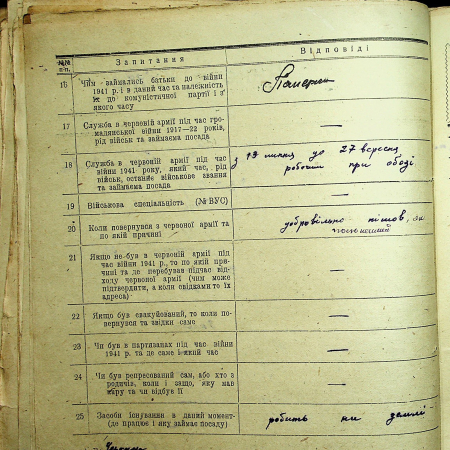 №№ п-п.
Запитання
Відповіді
16
Чим займались батьки до війни
1941 р. і в даний час та належність
їх до комуністичної партії і з
якого часу
Померли
17
Служба в червоній армії під час гро-
мадянської війни 1917—22 років,
рід військ та займаєма посада
—
18
Служба в червоній армії під час
війни 1941 року, який час, рід
військ, останнє військове звання
та займаєма посада
до 27 вересня
робочим при обозі
19
Військова спеціальність (№ ВУС)
—
20
Коли повернувся з червоної армії та
по якій причині
добровільно пішов, як
21
Якщо не був в червоній армії під
час війни 1941 р., то по якій при-
чині та де перебував підчас від-
ходу червоної армії (чим може
підтвердити, а коли свідками то їх
адреса)
—
22
Якщо був евакуйований, то коли по-
вернувся та звідки саме
—
23
Чи був в партизанах під час війни
1941 р. та де саме і який час
—
24
Чи був репресований сам, або хто з
родичів, коли і защо, яку мав
кару та чи відбув її
—
25
Засоби існування в даний момент
(де працює і яку займає посаду)
робить на землі